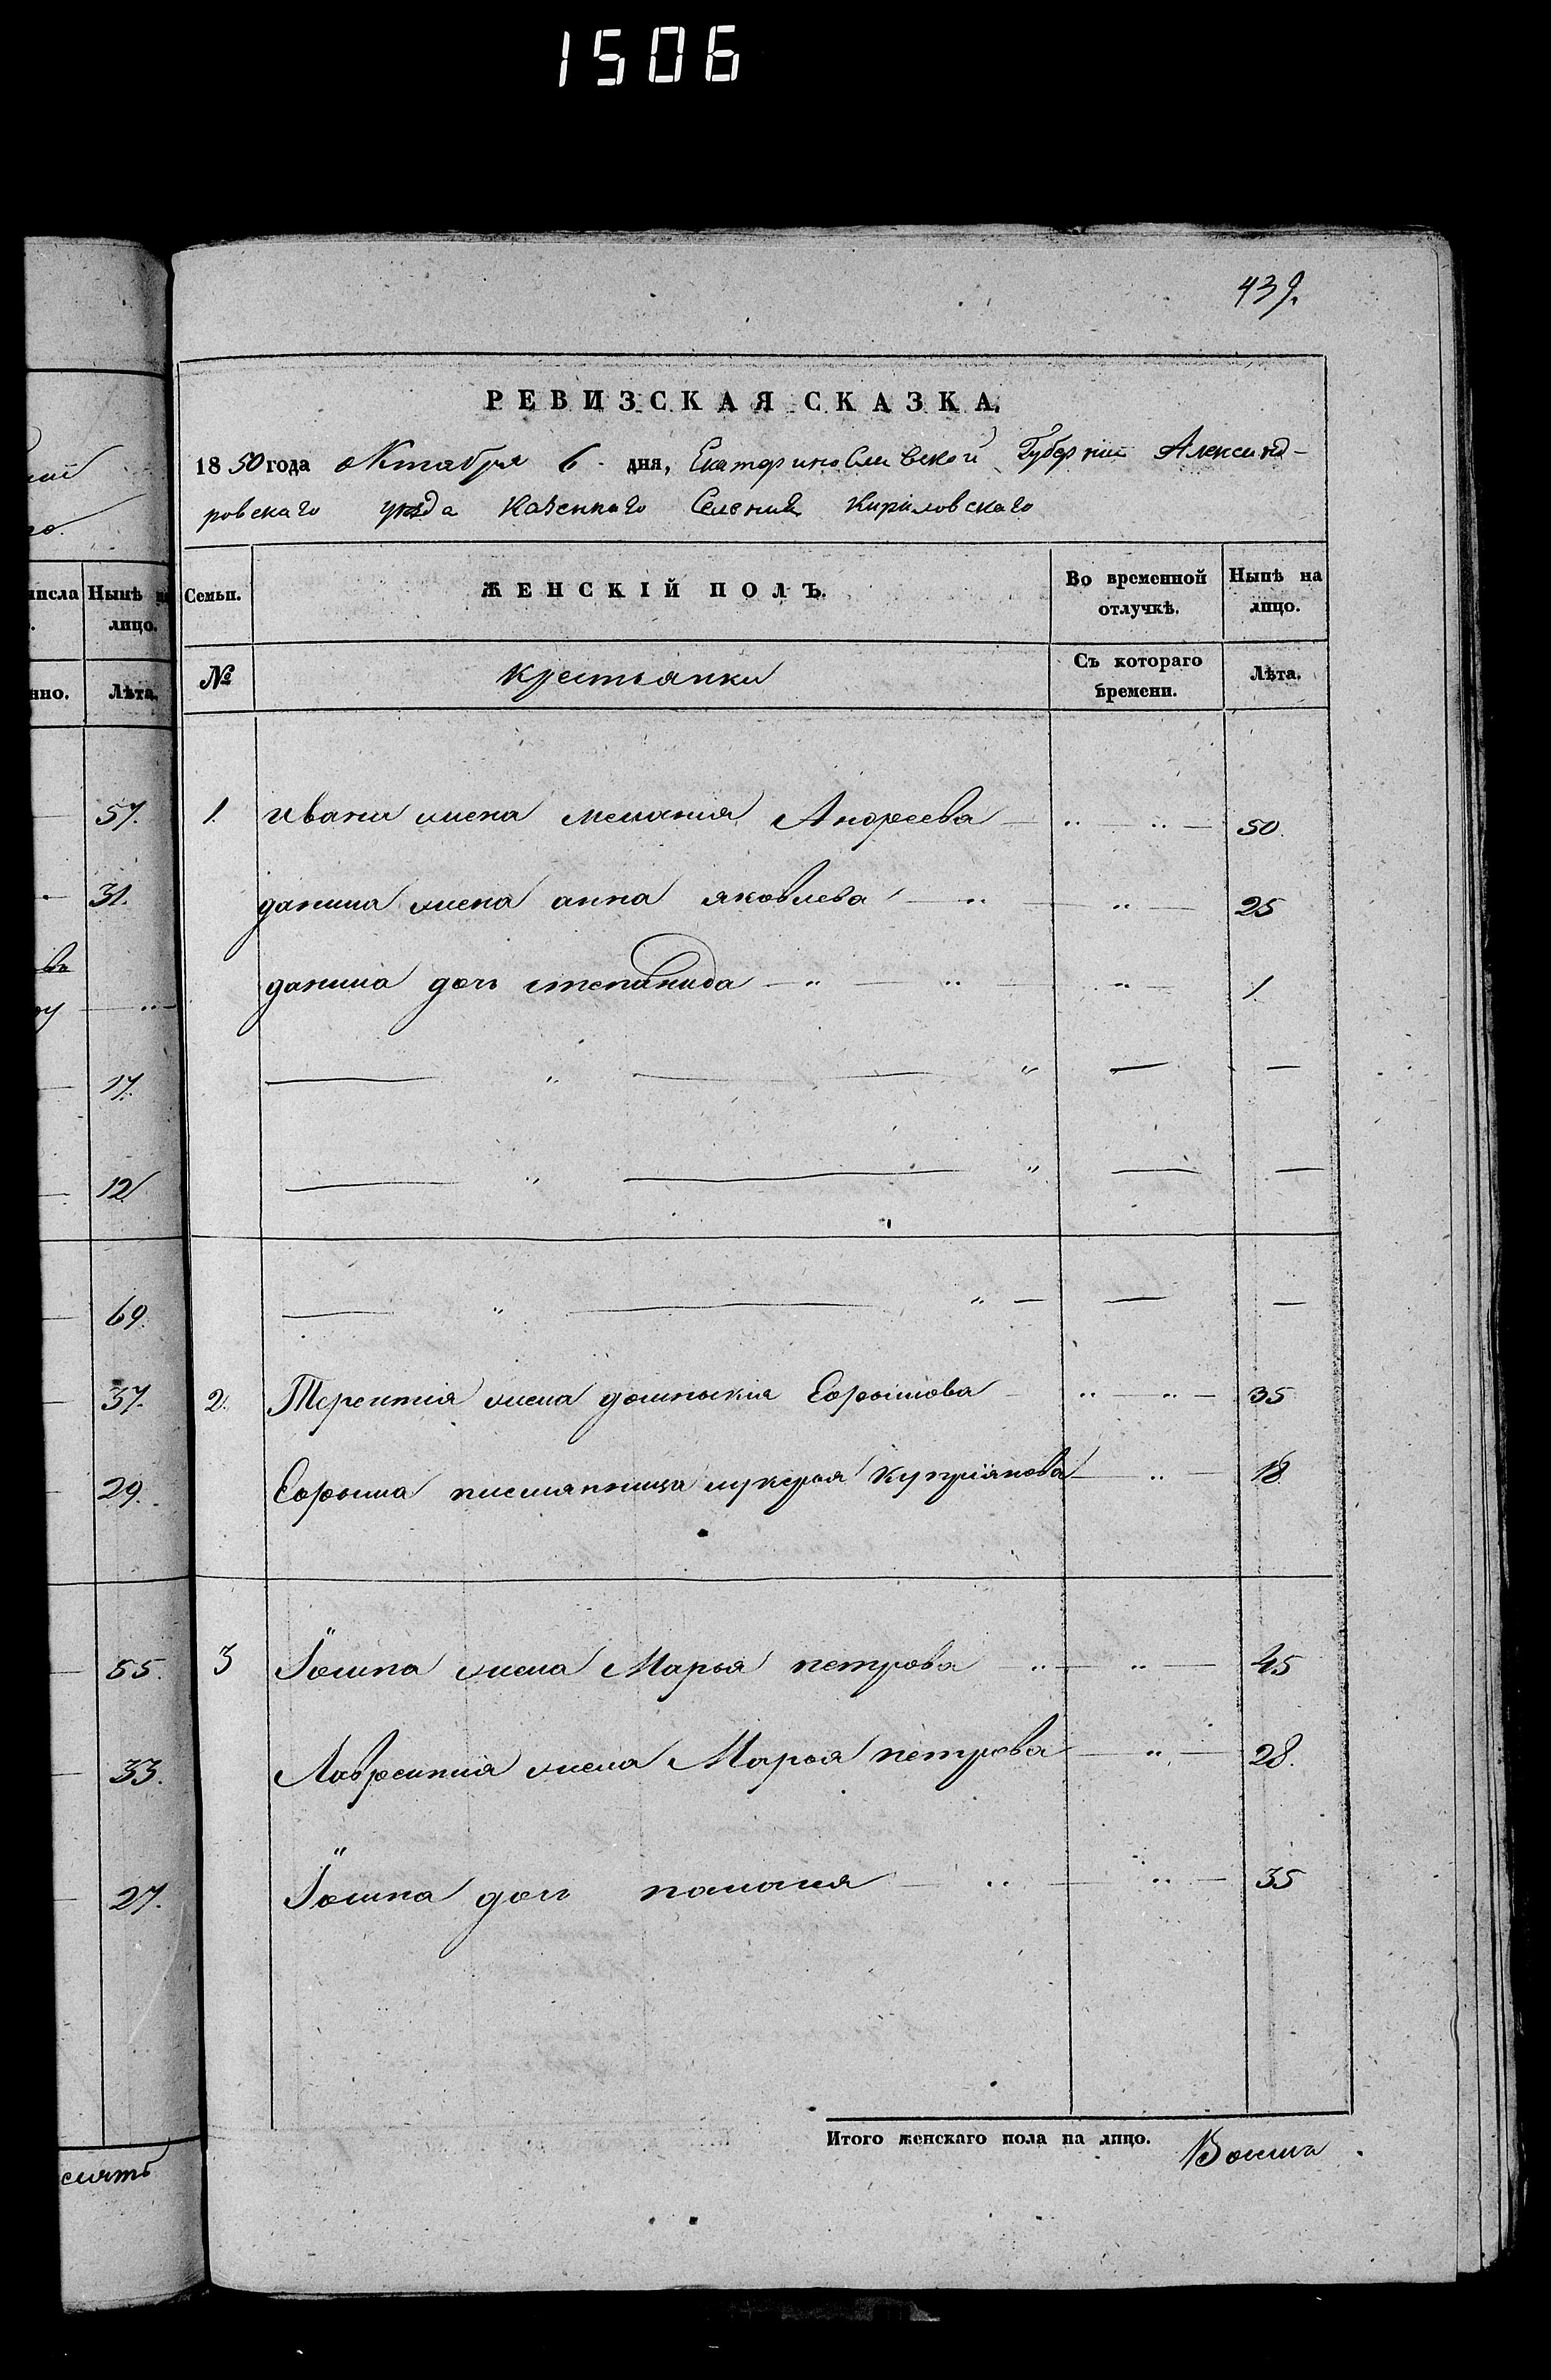 1506
439.
РЕВИЗСКАЯ СКАЗКА,
1850 года октября 6 дня, Екатеринославской Губерніи Александ-
ровскаго уѣзда Казеннаго Селенія Кириловскаго
Семьи. ЖЕНСКІЙ ПОЛЪ. Во временной отлучкѣ. Нынѣ на лицо.
№ Крестьянки Съ котораго времени. Лѣта.
1. Ивана жена меланія Андреева 50.
данила жена анна яковлева 25
данила дочь степанида 1
2. Терентія жена Ефимова 35
Ефима племянница лукерья Куприянова 18
3 Іосипа жена Марья петрова 45
Лаврентія жена Марья петрова 28.
Іосипа дочь 35
Итого женскаго пола на лицо. Восемь
нсла Нынѣ на
лицо.
нно. Лѣта.
57.
31.
въ
17.
12
69.
37.
29.
55.
33.
27.
сять